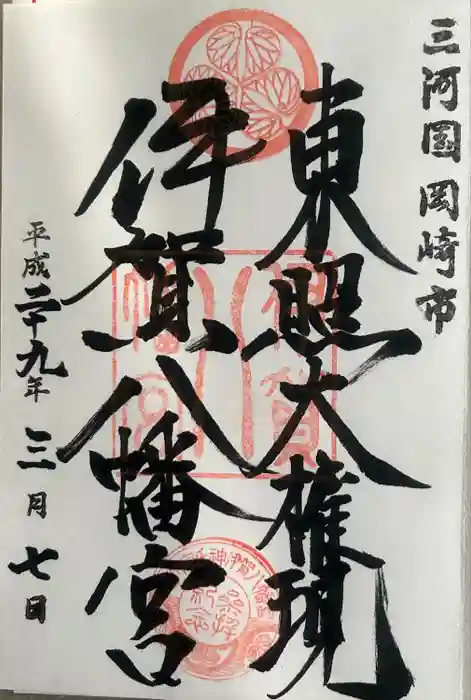 三河国岡崎市
東照大権現
伊賀八幡宮
平成二十九年三月七日
伊賀八幡宮